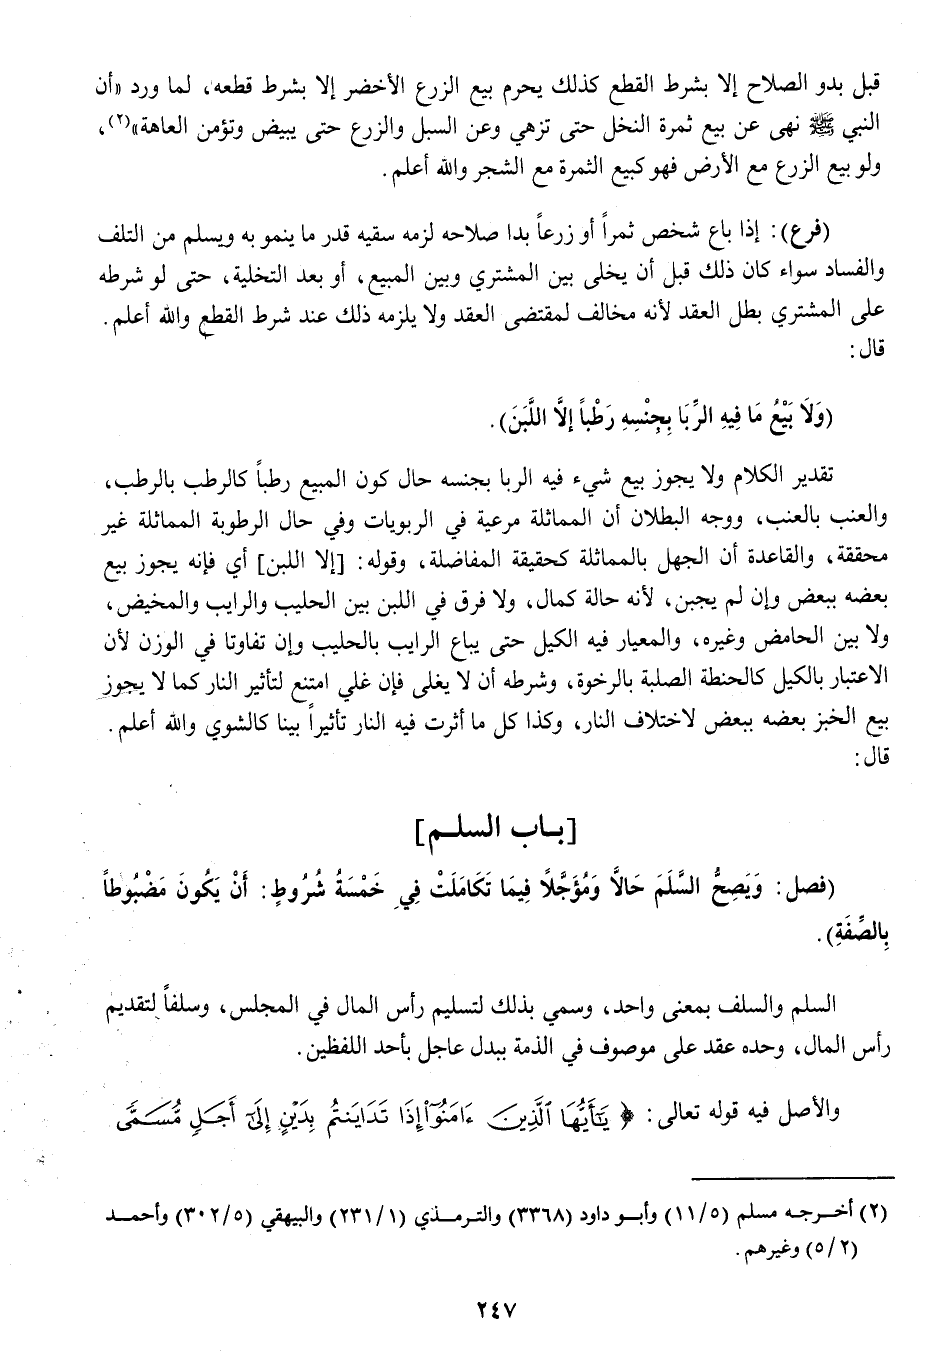 قبل بدو الصلاح إلا بشرط القطع كذلك يحرم بيع الزرع الأخضر إلا بشرط قطعه، لما ورد «أن
النبي ﷺ نهى عن بيع ثمرة النخل حتى تزهي وعن السبل والزرع حتى يبيض وتؤمن العاهة»(٢)،
ولو بيع الزرع مع الأرض فهو كبيع الثمرة مع الشجر والله أعلم.
(فرع): إذا باع شخص ثمراً أو زرعاً بدا صلاحه لزمه سقيه قدر ما ينمو به ويسلم من التلف
والفساد سواء كان ذلك قبل أن يخلى بين المشتري وبين المبيع، أو بعد التخلية، حتى لو شرطه
على المشتري بطل العقد لأنه مخالف لمقتضى العقد ولا يلزمه ذلك عند شرط القطع والله أعلم.
قال:
(وَلَا بَيْعُ مَا فِيهِ الرِّبَا بِجِنْسِهِ رَطْباً إلَّا اللَّبَنَ).
تقدير الكلام ولا يجوز بيع شيء فيه الربا بجنسه حال كون المبيع رطباً كالرطب بالرطب،
والعنب بالعنب، ووجه البطلان أن المماثلة مرعية في الربويات وفي حال الرطوبة المماثلة غير
محققة، والقاعدة أن الجهل بالمماثلة كحقيقة المفاضلة، وقوله: [إلا اللبن] أي فإنه يجوز بيع
بعضه ببعض وإن لم يجبن، لأنه حالة كمال، ولا فرق في اللبن بين الحليب والرايب والمخيض،
ولا بين الحامض وغيره، والمعيار فيه الكيل حتى يباع الرايب بالحليب وإن تفاوتا في الوزن لأن
الاعتبار بالكيل كالحنطة الصلبة بالرخوة، وشرطه أن لا يغلى فإن غلي امتنع لتأثير النار كما لا يجوز
بيع الخبز بعضه ببعض لاختلاف النار، وكذا كل ما أثرت فيه النار تأثيراً بينا كالشوي والله أعلم.
قال:
[بـاب السلـم]
(فصل: وَيَصِحُّ السَّلَمَ حَالًّا وَمُؤَجَّلًا فِيمَا تَكَامَلَتْ فِي خَمْسَةُ شُرُوطٍ: أَنْ يَكُونَ مَضْبُوطاً
بِالصِّفَةِ).
السلم والسلف بمعنى واحد، وسمي بذلك لتسليم رأس المال في المجلس، وسلفاً لتقديم
رأس المال، وحده عقد على موصوف في الذمة ببدل عاجل بأحد اللفظين.
والأصل فيه قوله تعالى: ﴿ يَٰٓأَيُّهَا ٱلَّذِينَ ءَامَنُوٓا۟ إِذَا تَدَايَنتُم بِدَيْنٍ إِلَىٰٓ أَجَلٍ مُّسَمًّى
(٢) أخـرجـه مسلم (٥/١١) وأبـو داود (٣٣٦٨) والتـرمـذي (١/٢٣١) والبيهقي (٥/٣٠٢) وأحمـد
(٢/٥) وغيرهم.
٢٤٧